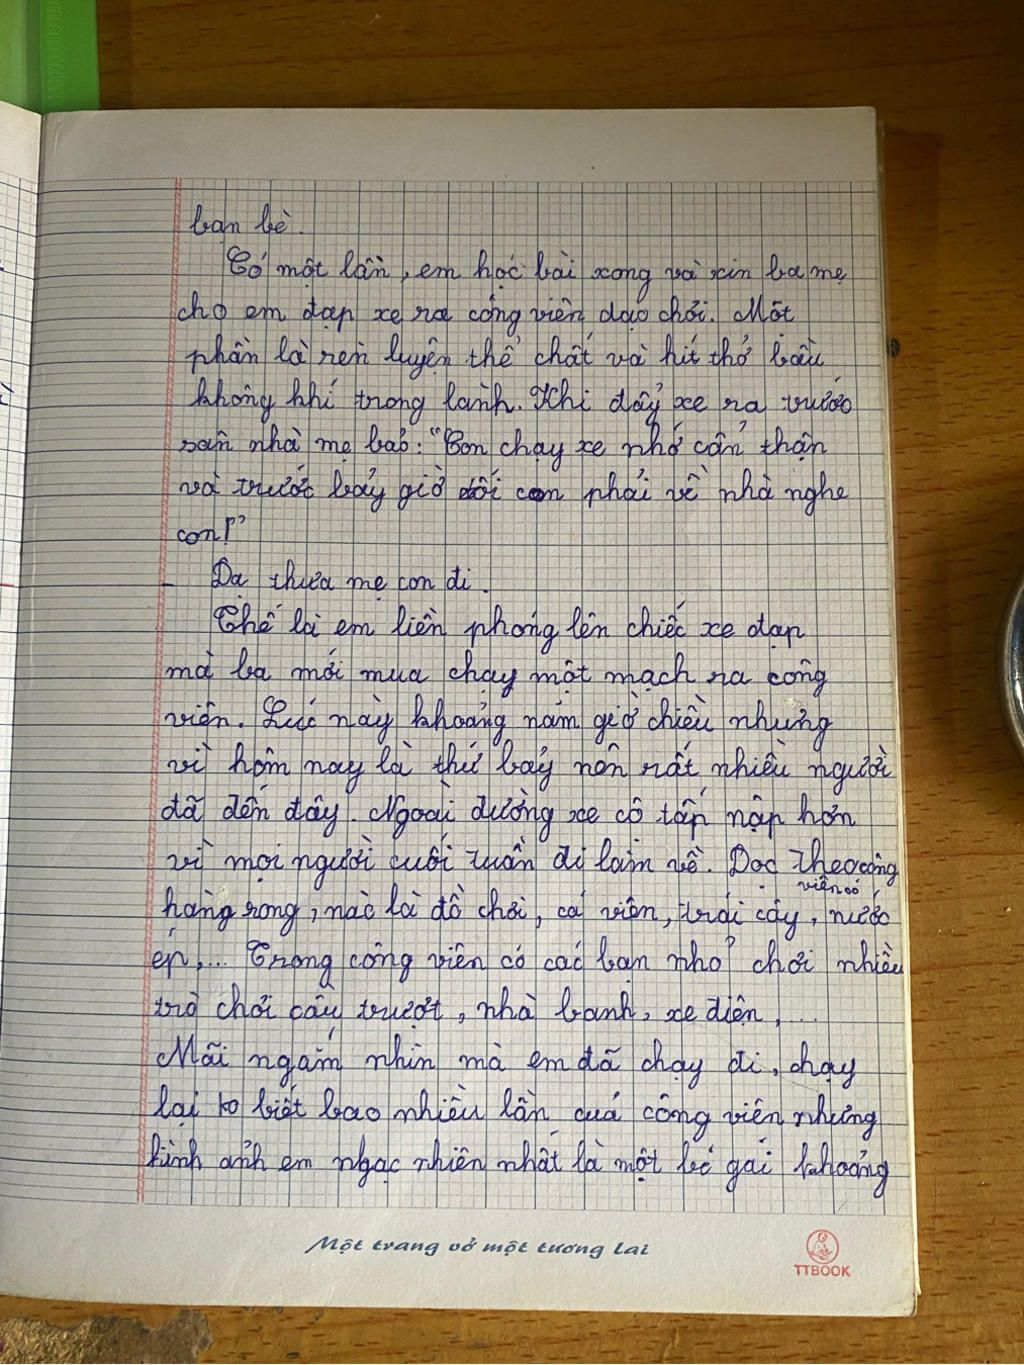 bạn bè.
Có một lần, em học bài xong và xin ba mẹ
cho em đạp xe ra công viên dạo chơi. Một
phần là rèn luyện thể chất và hít thở bầu
không khí trong lành. Khi đẩy xe ra trước
sân nhà mẹ bảo: "Con chạy xe nhớ cẩn thận
và trước bảy giờ tối con phải về nhà nghe
con!"
- Dạ thưa mẹ con đi.
Thế là em liền phóng lên chiếc xe đạp
mà ba mới mua chạy một mạch ra công
viên. Lúc này khoảng năm giờ chiều nhưng
vì hôm nay là thứ bảy nên rất nhiều người
đã đến đây. Ngoài đường xe cộ tấp nập hơn
vì mọi người cuối tuần đi làm về. Dọc theo công
viên có
hàng rong, nào là đồ chơi, cá viên, trái cây, nước
ép,... Trong công viên có các bạn nhỏ chơi nhiều
trò chơi cầu trượt, nhà banh, xe điện,...
Mãi ngắm nhìn mà em đã chạy đi, chạy
lại ko biết bao nhiêu lần quá công viên nhưng
hình ảnh em ngạc nhiên nhất là một bé gái khoảng
Một trang vở một tương lai
TTBOOK